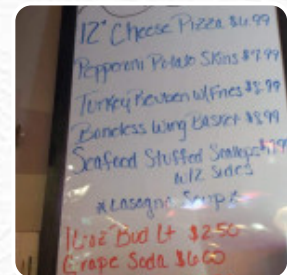 12" Cheese Pizza $6.99
Pepperoni Potato Skins $7.99
Turkey Reuben w/Fries $8.99
Boneless Wing Basket $8.99
Seafood Stuffed
w/2 Sides
*Lasagna Soup*
16oz Bud Lt $2.50
Grape Soda $6.00